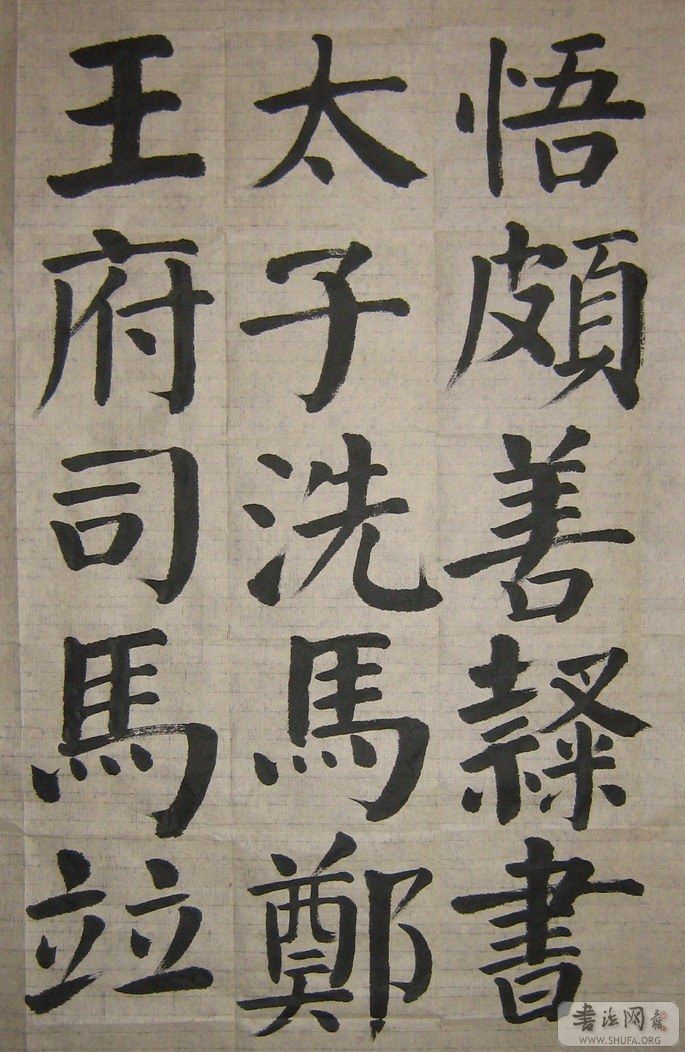 悟頗善隸書
太子洗馬鄭
王府司馬竝
书法网
WWW.SHUFA.ORG